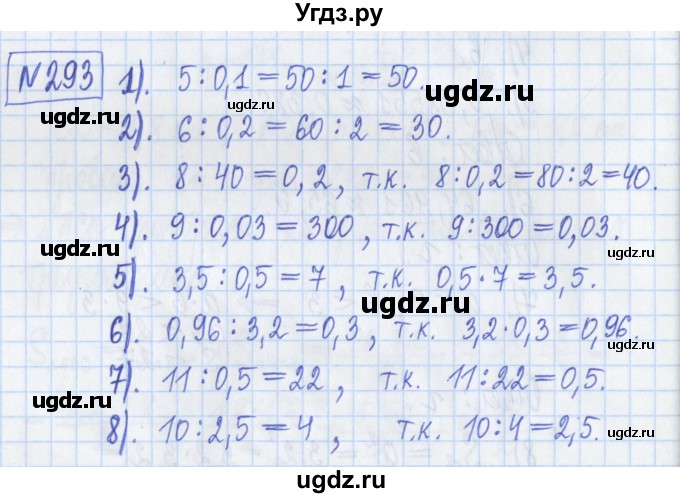 Угдз.ру
№293 1). 5:0,1=50:1=50.
ugdz.ru ugdz.ru ugdz.ru
2). 6:0,2=60:2=30.
ugdz.ru
3). 8:40=0,2, т.к. 8:0,2=80:2=40.
ugdz.ru
4). 9:0,03=300, т.к. 9:300=0,03.
ugdz.ru ugdz.ru
5). 3,5:0,5=7, т.к. 0,5·7=3,5.
ugdz.ru
6). 0,96:3,2=0,3, т.к. 3,2·0,3=0,96.
ugdz.ru
7). 11:0,5=22, т.к. 11:22=0,5.
ugdz.ru ugdz.ru
8). 10:2,5=4, т.к. 10:4=2,5.
ugdz.ru
ugdz.ru